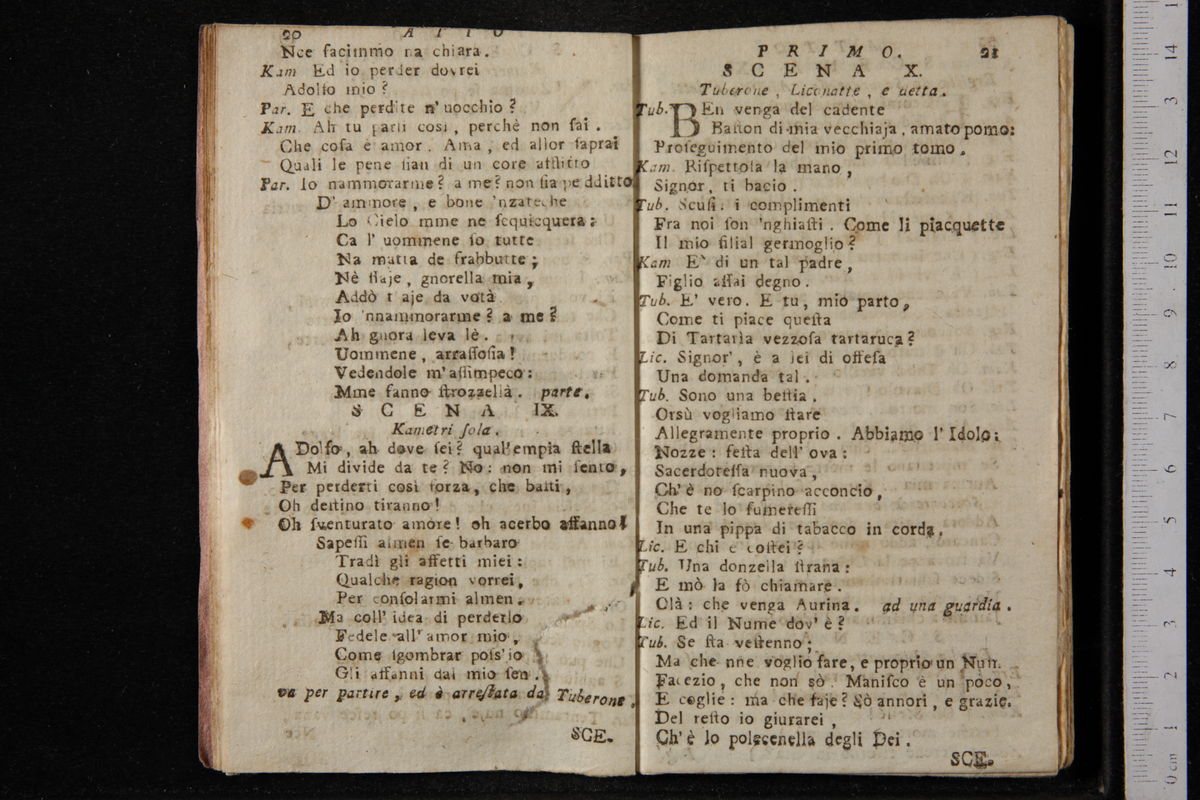 20 A T T O
Nce facimmo na chiara.
Kam Ed io perder dovrei
Adolfo mio?
Par. E che perdite n' uocchio?
Kam. Ah tu parli così, perchè non sai.
Che cosa è amor. Ama, ed allor saprai
Quali le pene sian di un core afflitto
Par. Io nammorarme? a me? non sia pe ddittto
D' ammore, e bone 'nzateche
Lo Cielo mme ne sequiequera:
Ca l' uommene so tutte
Na matta de frabbutte;
Nè staje, gnorella mia,
Addò t' aje da votà
Io 'nnammorarme? a me?
Ah gnora leva lè.
Uommene, arrassosia!
Vedendole m' assimpeco:
Mme fanno strozzellà. parte.
S C E N A IX.
Kametri sola.
ADolfo, ah dove sei? qual' empia stella
Mi divide da te? No: non mi sento,
Per perderti così forza, che basti,
Oh destino tiranno!
Oh sventurato amore! oh acerbo affanno!
Sapessi almen se barbaro
Tradì gli affetti miei:
Qualche ragion vorrei,
Per consolarmi almen.
Ma coll' idea di perderlo
Fedele all' amor mio,
Come sgombrar poss' io
Gli affanni dal mio sen.
va per partire, ed è arrestata da Tuberone.
SCE.
P R I M O. 21
S C E N A X.
Tuberone, Liconatte, e detta.
Tub. BEn venga del cadente
Baston di mia vecchiaja, amato pomo:
Proseguimento del mio primo tomo.
Kam. Rispettosa la mano,
Signor, ti bacio.
Tub. Scusi: i complimenti
Fra noi son 'nghiasti. Come li piacquette
Il mio filial germoglio?
Kam E' di un tal padre,
Figlio assai degno.
Tub. E' vero. E tu, mio parto,
Come ti piace questa
Di Tartarìa vezzosa tartaruca?
Lic. Signor', è a lei di offesa
Una domanda tal.
Tub. Sono una bestia.
Orsù vogliamo stare
Allegramente proprio. Abbiamo l' Idolo:
Nozze: festa dell' ova:
Sacerdotessa nuova,
Ch' è no scarpino acconcio,
Che te lo fumeressi
In una pippa di tabacco in corda.
Lic. E chi è costei?
Tub. Una donzella strana:
E mò la fò chiamare.
Olà: che venga Aurina. ad una guardia.
Lic. Ed il Nume dov' è?
Tub. Se sta vestenno;
Ma che nne voglio fare, e proprio un Nun.
Facezio, che non sò. Manisco è un poco,
E coglie: ma che saje? Sò annori, e grazie.
Del resto io giurarei,
Ch' è lo polecenella degli Dei.
SCE.